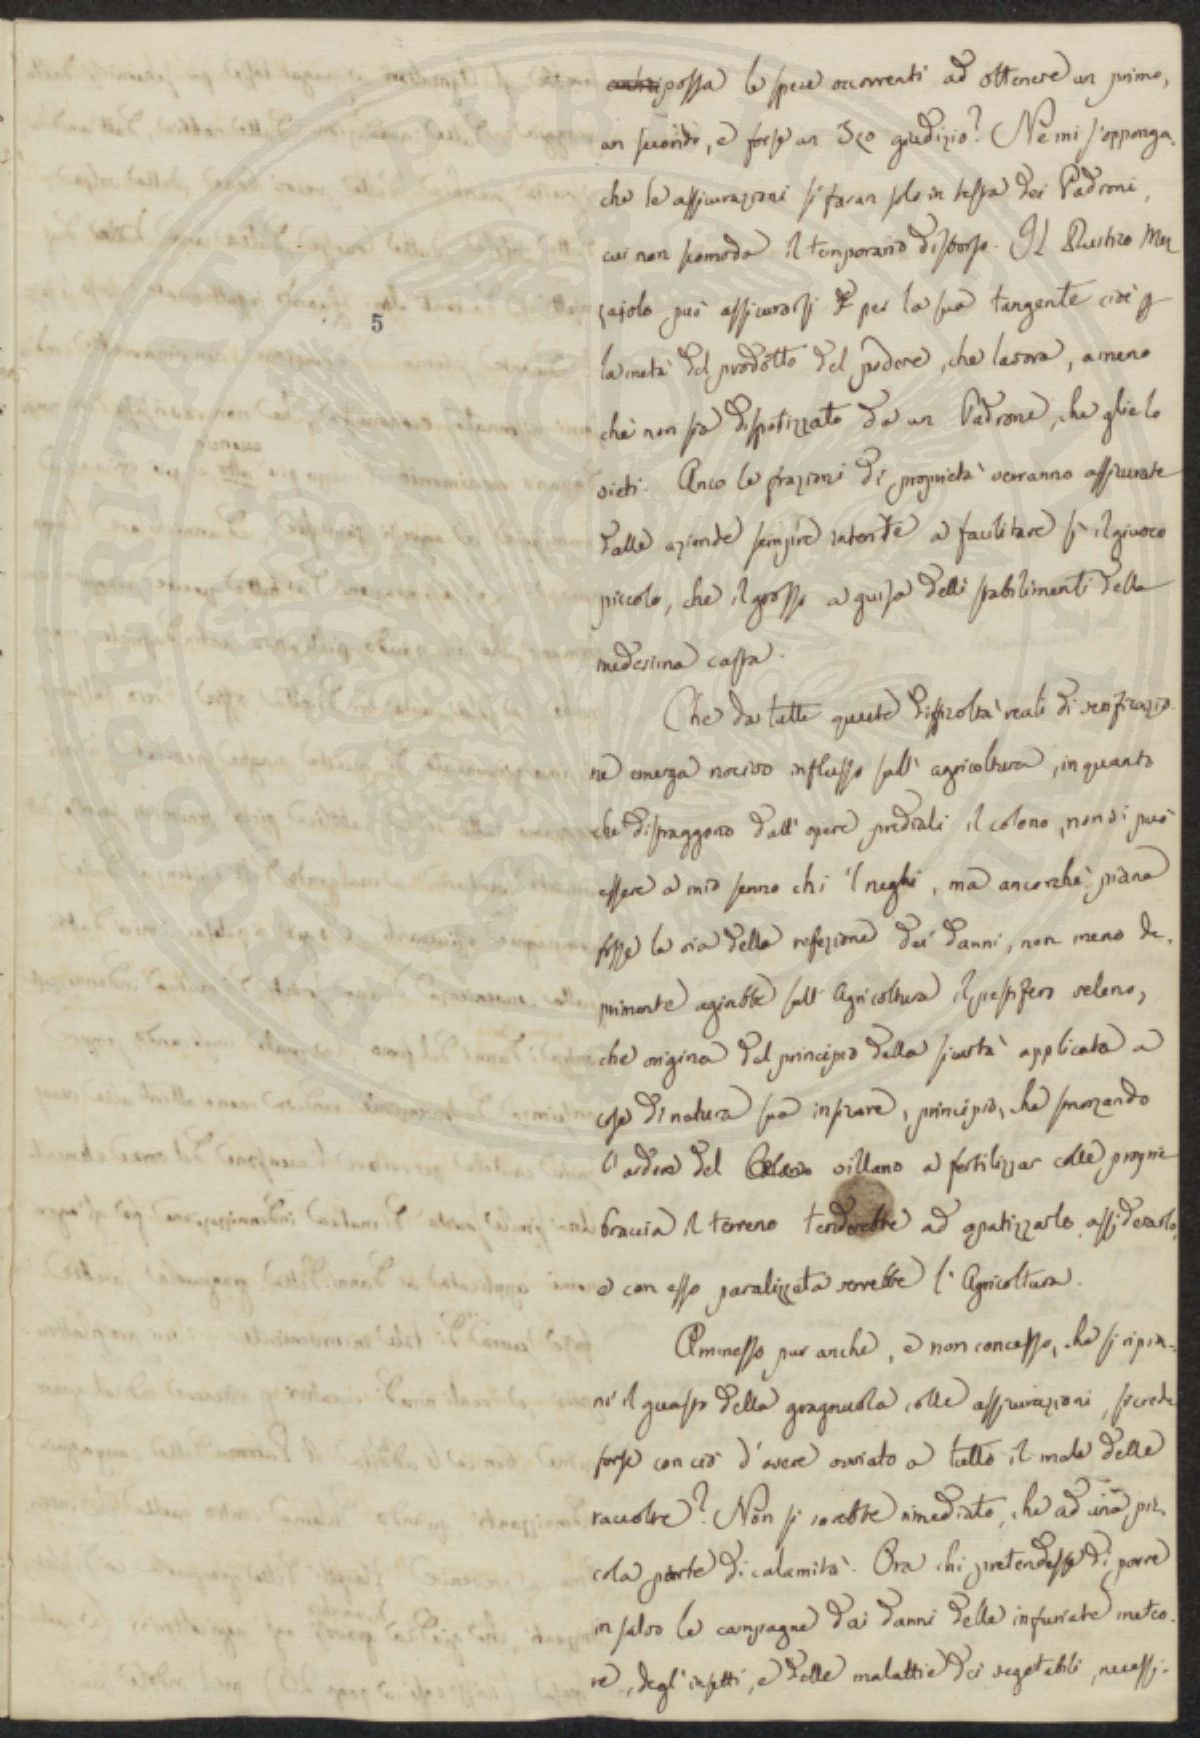 possa le spese occorrenti ad ottenere un primo,
un secondo, e forse un 3zo giudizio? Ne mi s'opponga
che le assicurazioni si faran solo in testa dei Padroni,
cui non scomoda il temporario disborso. Il Rustico Mez
zajolo può assicurarsi per la sua tangente cioè p
5
la metà del prodotto del podere, che lavora, ameno
chè non sia dispotizzato da un Padrone, che glielo
vieti. Anco le frazioni di proprietà verranno assicurate
dalle aziende sempre intente a facilitare sì il giuoco
piccolo, che il grosso a guisa delli stabilimenti della
medesima cassa.
Che da tutte queste difficoltà reali di verificazio-
ne emerga nocivo influsso sull' agricoltura, in quanto
che distraggono dall' opere prediali il colono, non vi può
essere a mio senno chi 'l neghi, ma ancorchè piana
fosse la via della refezione dei danni, non meno de-
primente agirebbe sull' Agricoltura il pestifero veleno,
che origina dal principio della applicata a
cose di natura sua insicure, principio, che smorzando
l'ardore del villano a fertilizzar colle proprie
braccia il terreno tenderebbe ad apatizzarlo, assiderarlo,
e con esso paralizzata verrebbe l' Agricoltura.
Ammesso pur anche, e non concesso, che si ripia-
ni il guasto della gragnuola colle assicurazioni, si crede
forse con ciò d'avere ovviato a tutto il male delle
raccolte? Non si sarebbe rimediato, che ad una pic-
cola parte di calamità. Ora chi pretendesse di porre
in salvo le campagne dai danni delle infuriate meteo-
re, degl' insetti, e delle malattie dei vegetabili, necessi-